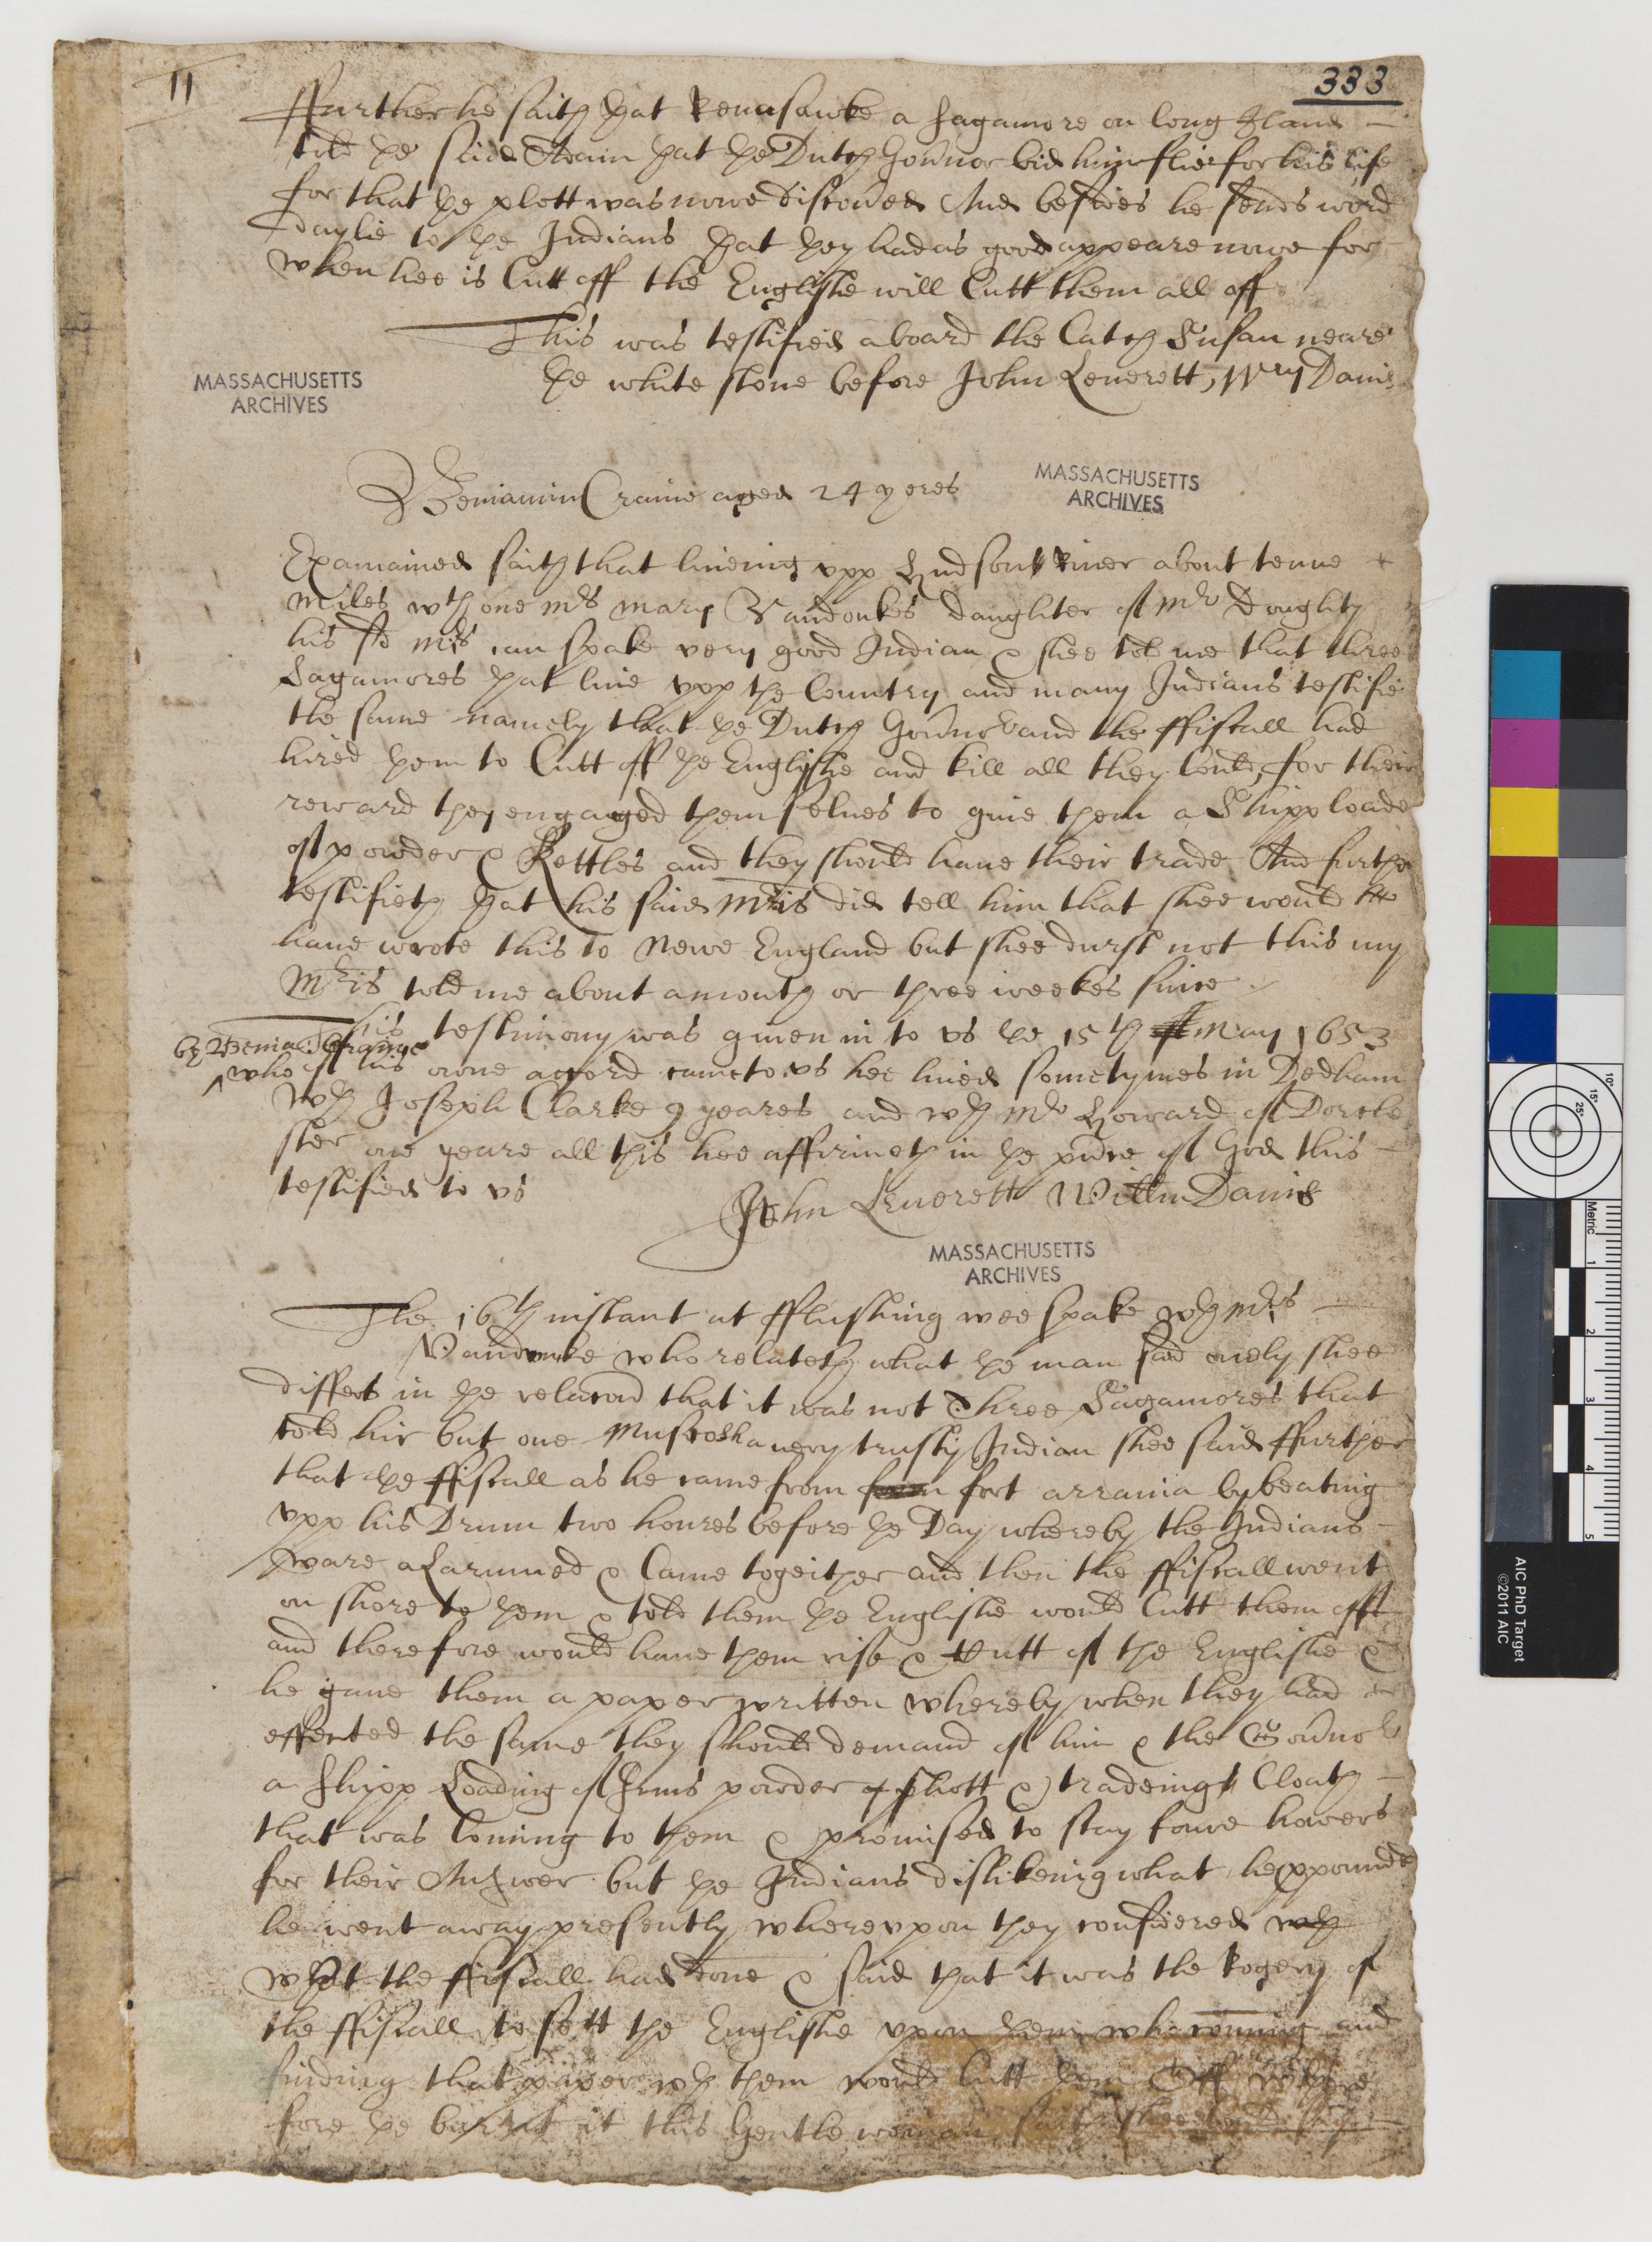 11
333
ffurther he saith yat Ronnsawke a Sagamore on long Iland
told ye said Swain yat ye Dutch Govnor bid him flie for his life
for that ye plott was nowe discoved And besides he sends word
daylie to ye Indians yat yey had as good appeare nowe for
when hee is Cutt off the Englishe will Cutt them all off
This was testified aboard the Catch Susan neare
ye white stone before John Leverett, Wm Davis
MASSACHUSETTS
ARCHIVES
Beniamin Crane aged 24 yeres
MASSACHUSETTS
ARCHIVES
Examained saith that liueing vpp Hudsons Riuer about tenne
miles wth one mrs mary Vandonkes daughter of mr Doughty
his sd mris can speake very good Indian & shee told me that three
Sagamores yat liue vpp the Country and many Indians testifie
the same namely that ye Dutch Govnor and the ffiscall had
hired yem to Cutt off ye Englishe and kill all they Could, for their
reward they engaged themselues to giue them a Shipp loade
of powder & Kettles and they should haue their trade And further
testifieth yat his said Mris did tell him that shee would
haue wrote this to Newe England but shee durst not this my
Mris told me about a month or three weekes since
This testimony was giuen in to vs ye 15th May 1653
by Beniam: Crane
who of his owne accord came to vs hee liued sometymes in Dedham
wth Joseph Clarke 9 yeares and wth mr Howard of Dorche
ster one yeare all this hee affirmeth in ye pnce of God this
testified to vs
John Leuerett Willm Dauis
MASSACHUSETTS
ARCHIVES
The 16th instant at fflushing wee spake wth mris
Vandonke who relateth what ye man said onely shee
differs in ye relacon that it was not Three Sagamores that
told hir but one Muscosha a very trusty Indian shee said ffurther
that ye ffiscall as he came from fort arrania by beating
vpp his Drum two houres before ye Day whereby the Indians
ware alarumed & Came togeither and then the ffiscall went
on shore to yem & told them ye Englishe would Cutt them off
and therefore would haue them rise & Cutt of the Englishe &
he gaue them a paper written whereby when they had
effected the same they should demand of him & the Govnor
a Shipp Loading of Arms powder & shott & tradeing Cloath
that was Coming to them & promised to stay foure howers
for their Answer but ye Indians dislikeing what he ppounded
he went away presently wherevpon they considered wth
what the ffiscall had done & said that it was the Rogery of
the ffiscall to sett the Englishe vpon yem who coming and
finding that paper wth them would Cutt yem Off where
fore ye burnt it this Gentlewoman saith shee